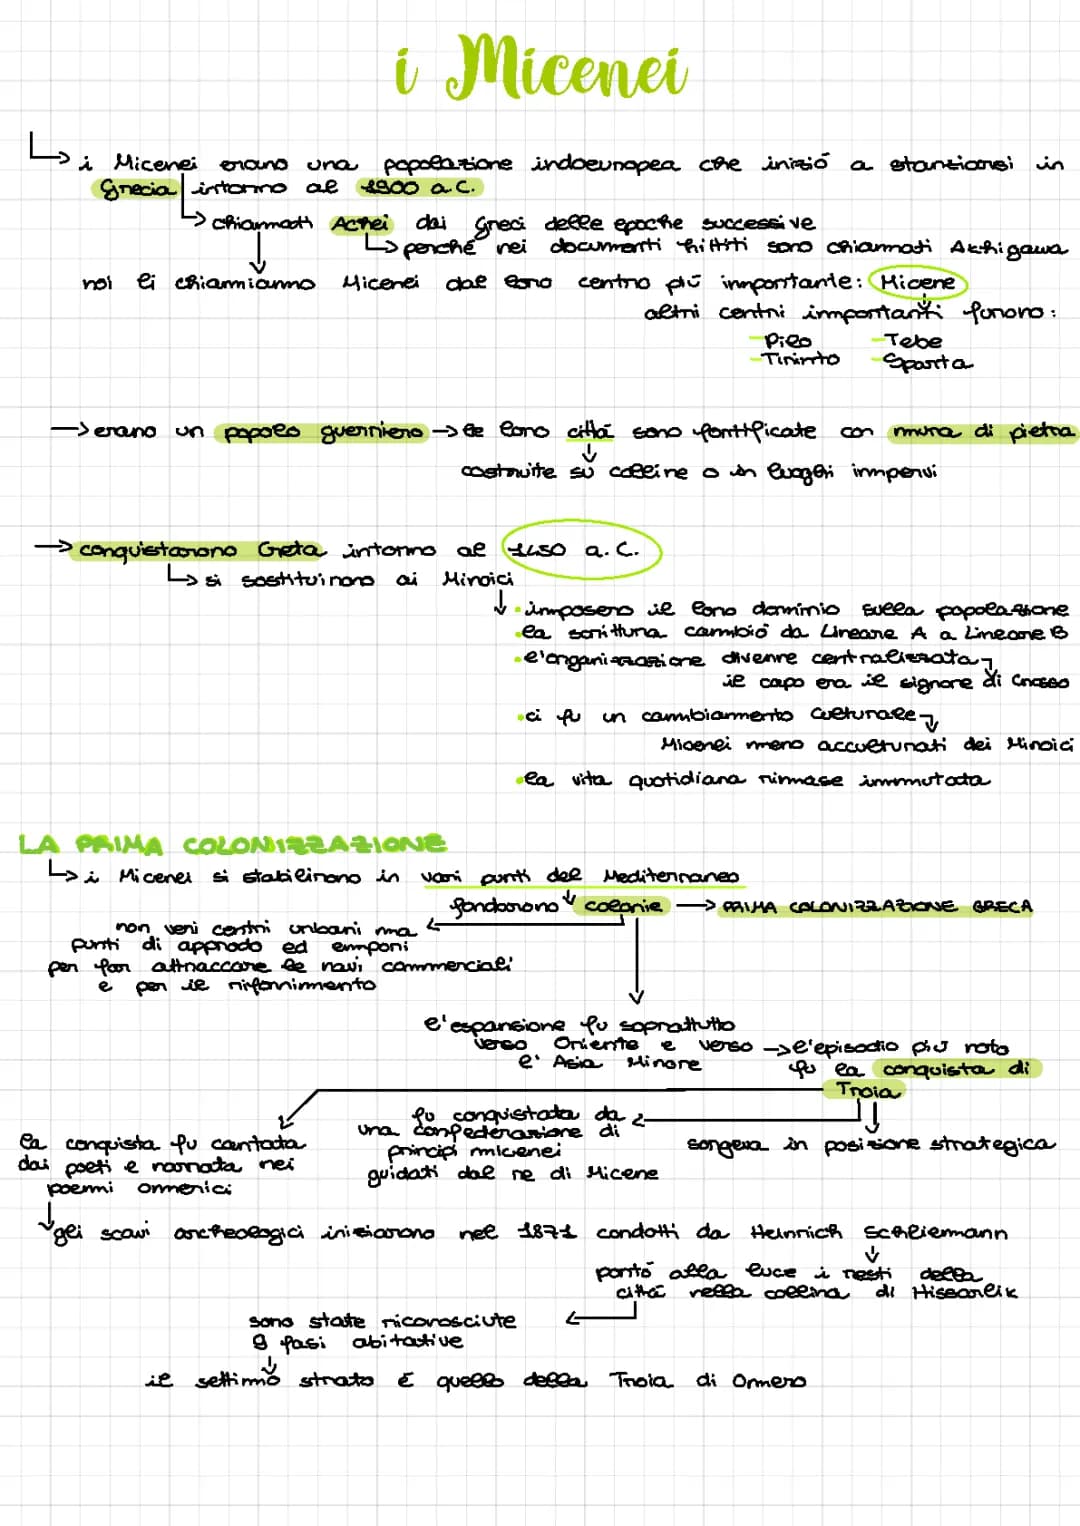 i Micenei
i Micenei erano una popolazione indoeuropea che iniziò a stanziarsi in
Grecia intorno al 1900 a.C.
chiamati Achei dai Greci delle epoche successive
perché nei documenti hittiti sono chiamati Akhigawa
noi li chiamiamo Micenei dal loro centro più importante: Micene
altri centri importanti furono:
-Pilo -Tebe
-Tirinto -Sparta
erano un popolo guerriero → le loro città sono fortificate con mura di pietra
costruite su colline o in luoghi impervi
conquistarono Creta intorno al 1450 a.C.
si sostituirono ai Minoici
• imposero il loro dominio sulla popolazione
• la scrittura cambiò da Lineare A a Lineare B
• l'organizzazione divenne centralizzata
il capo era il signore di Cnosso
• ci fu un cambiamento culturale
Micenei meno acculturati dei Minoici
• la vita quotidiana rimase immutata
LA PRIMA COLONIZZAZIONE
i Micenei si stabilirono in vari punti del Mediterraneo
fondarono colonie → PRIMA COLONIZZAZIONE GRECA
non veri centri urbani ma
punti di approdo ed empori
per far attraccare le navi commerciali
e per il rifornimento
l'espansione fu soprattutto
verso Oriente e verso → l'episodio più noto
l' Asia Minore fu la conquista di
Troia
fu conquistata da
una confederazione di
principi micenei
guidati dal re di Micene
sorgeva in posizione strategica
la conquista fu cantata
dai poeti e narrata nei
poemi omerici
gli scavi archeologici iniziarono nel 1871 condotti da Heinrich Schliemann
portò alla luce i resti della
città nella collina di Hissarlik
sono state riconosciute
9 fasi abitative
il settimo strato è quello della Troia di Omero